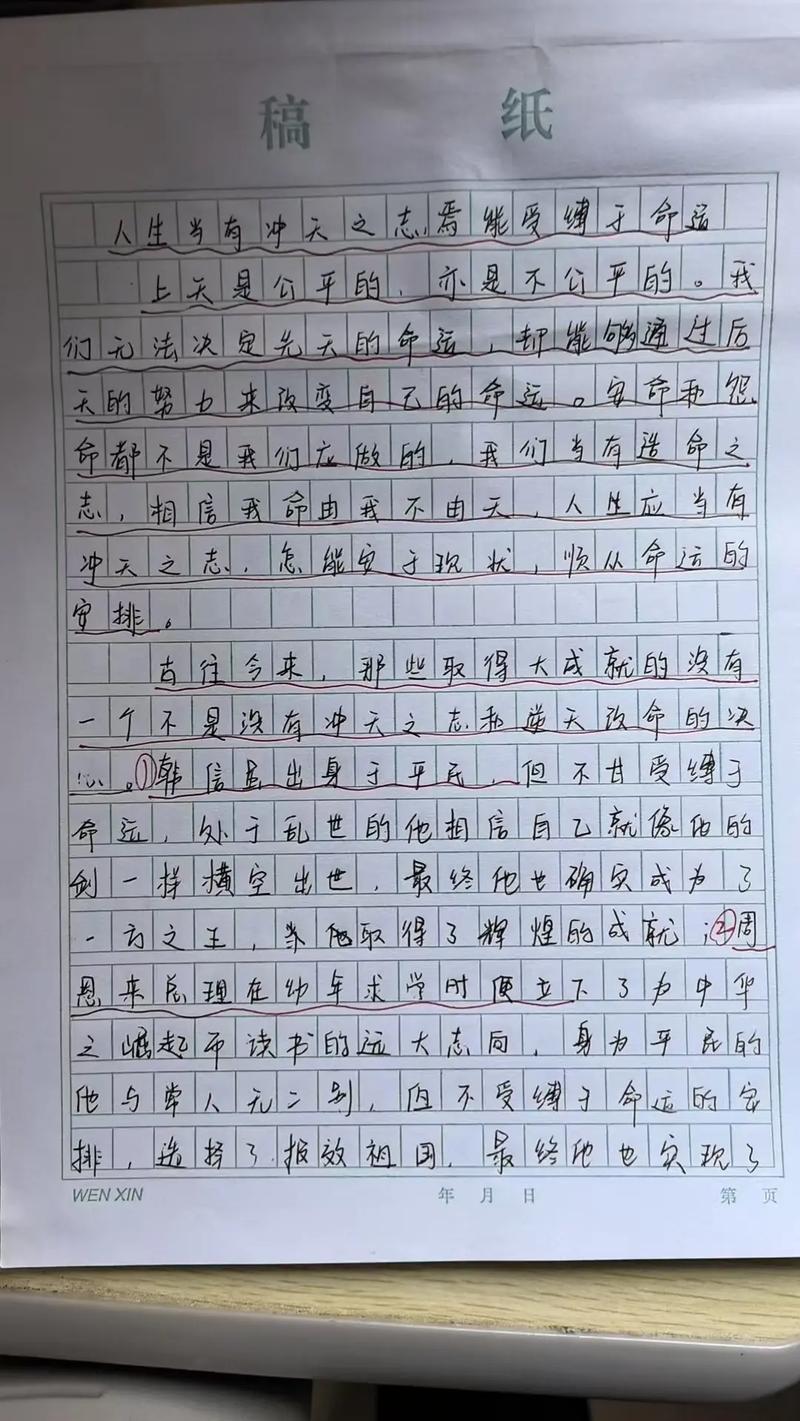 稿 纸
人生当有冲天之志焉能受缚于命运
上天是公平的，亦是不公平的。我
们无法决定先天的命运，却能够通过后
天的努力来改变自己的命运。安命和怨
命都不是我们应做的，我们当有造命之
志，相信我命由我不由天，人生应当有
冲天之志，怎能安于现状，顺从命运的
安排。
古往今来，那些取得大成就的没有
一个不是没有冲天之志和逆天改命的决
心。①韩信虽出身于平民，但不甘受缚于
命运，处于乱世的他相信自己就像他的
剑一样横空出世，最终他也确实成为了
一方之王，当他取得了辉煌的成就；②周
恩来总理在幼年求学时便立下了为中华
之崛起而读书的远大志向，身为平民的
他与常人无二别，但不受缚于命运的安
排，选择了报效祖国，最终他也实现了
WEN XIN 年 月 日 第 页